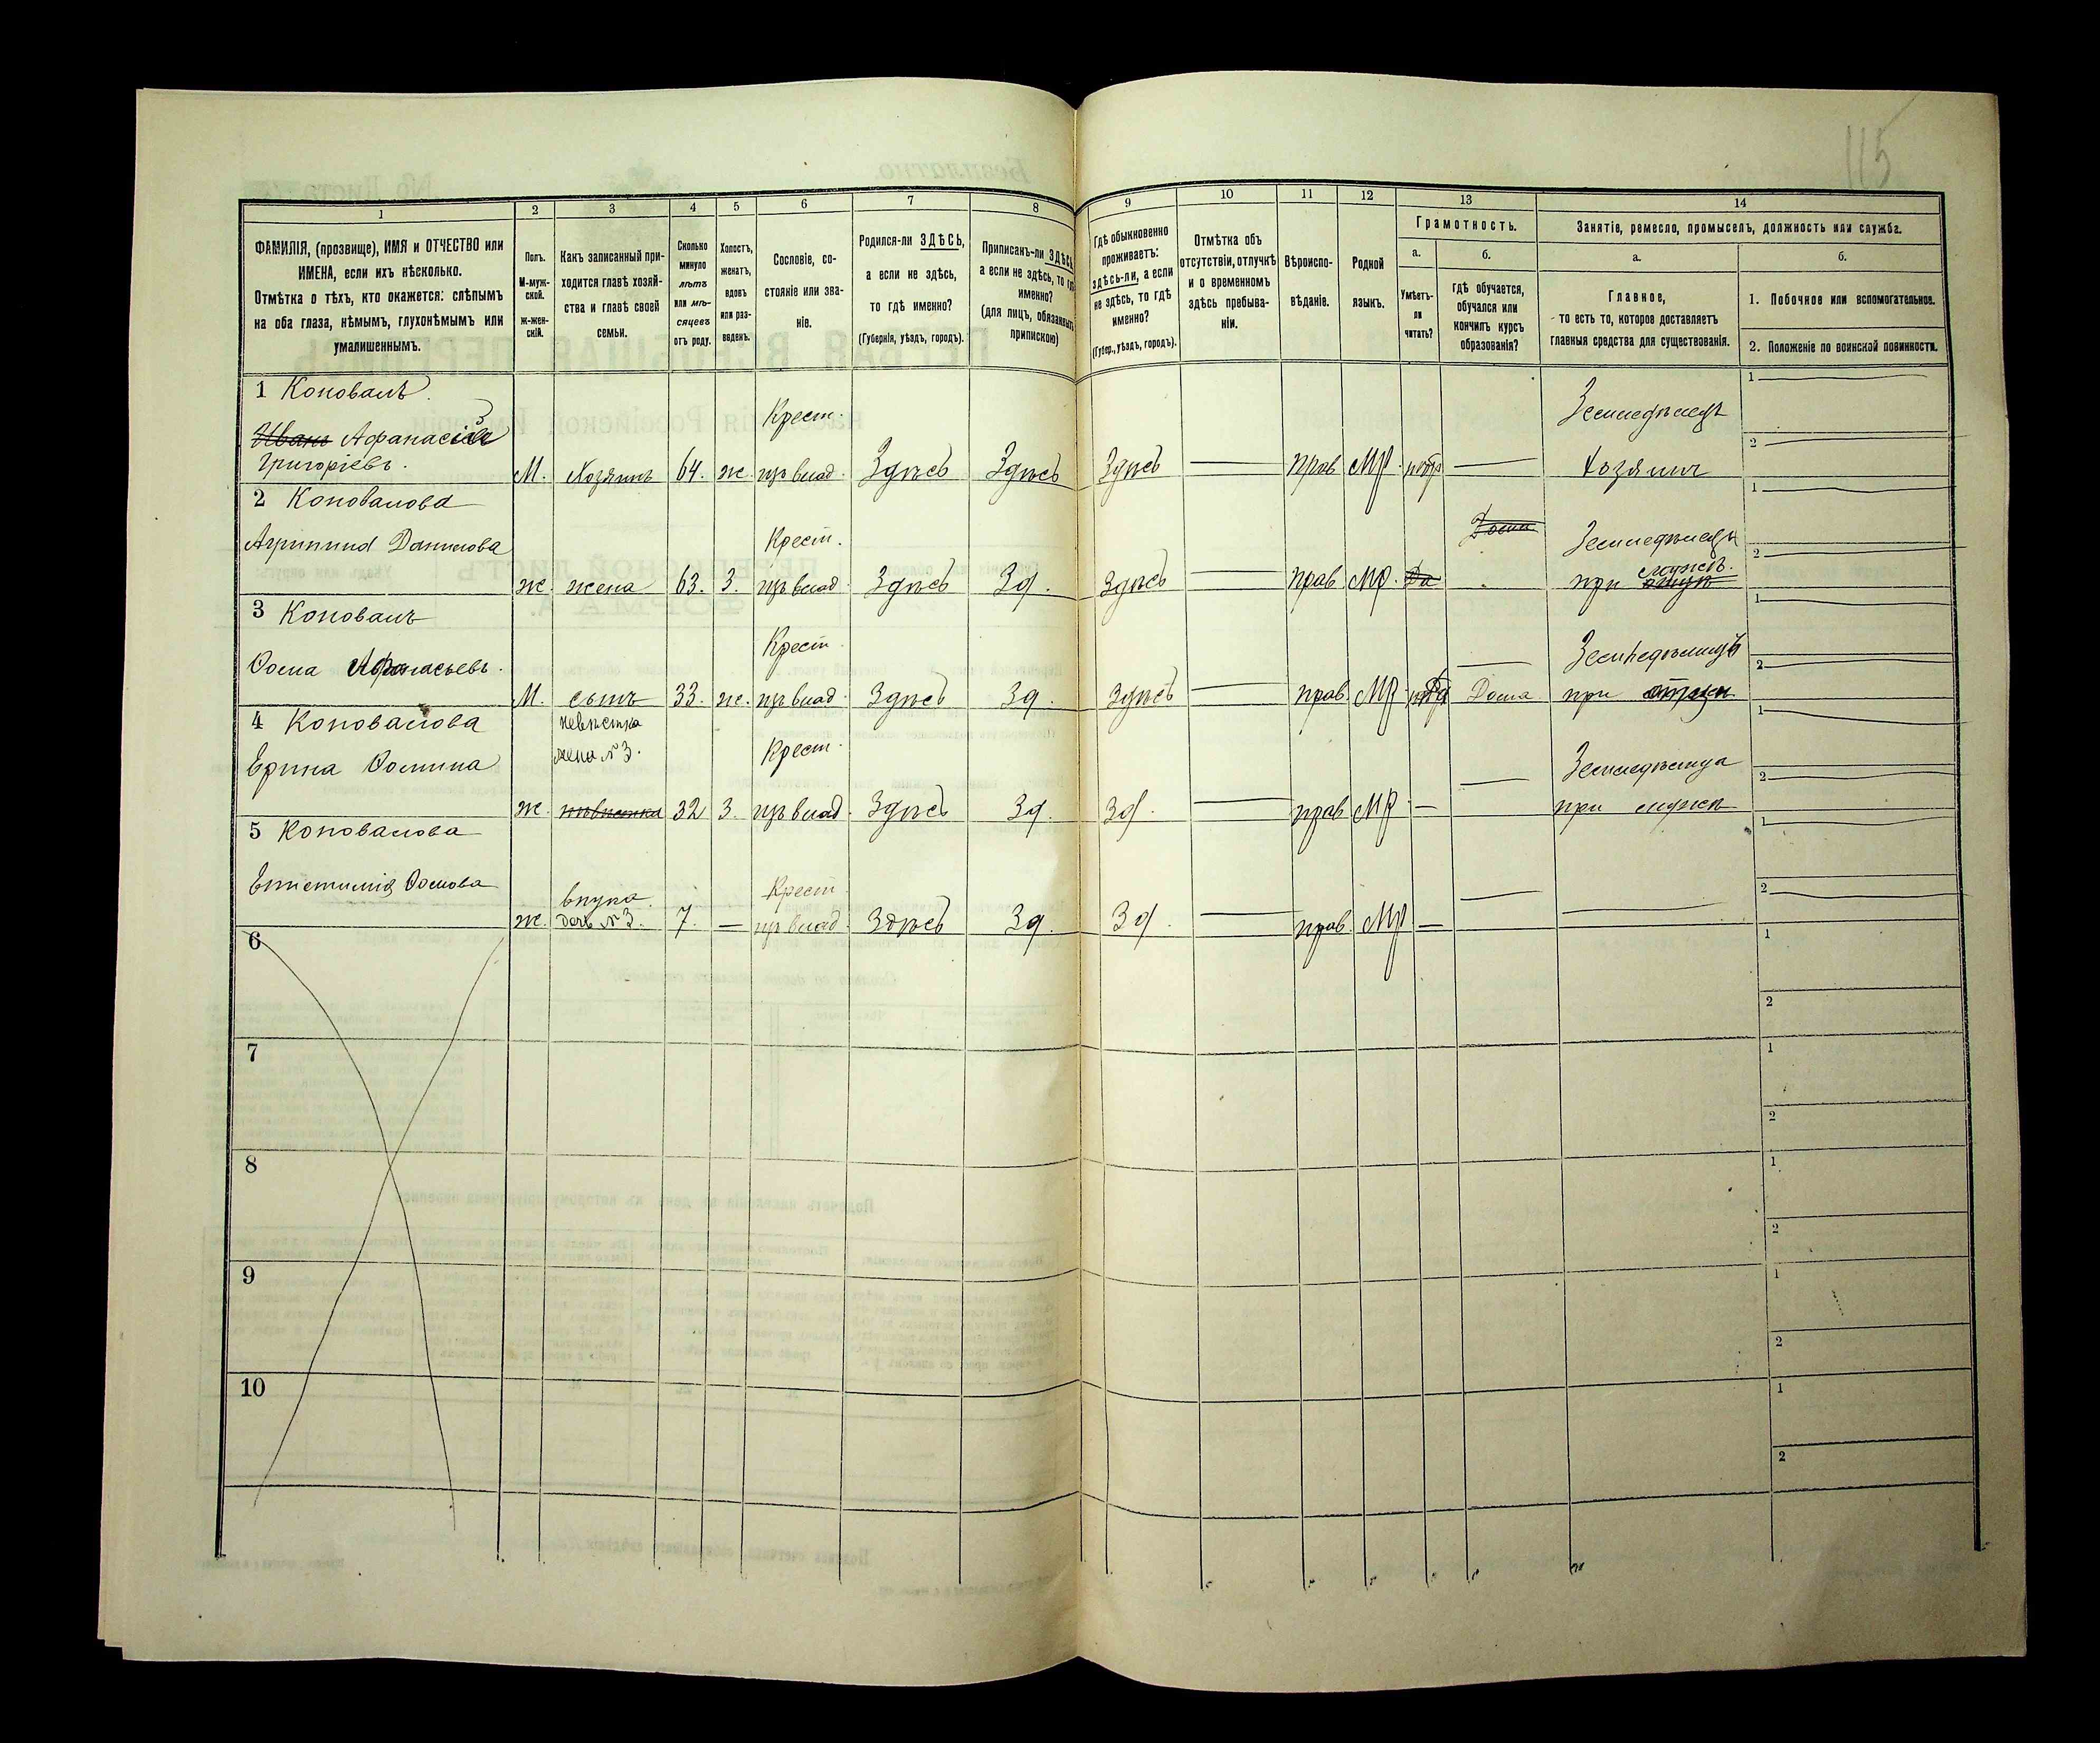 115
1
2
3
4
5
6
7
8
9
10
11
12
13
14
ФАМИЛІЯ, (прозвище), ИМЯ и ОТЧЕСТВО или
ИМЕНА, если ихъ нѣсколько.
Отмѣтка о тѣхъ, кто окажется: слѣпымъ
на оба глаза, нѣмымъ, глухонѣмымъ или
умалишеннымъ.
Полъ.
М-муж-
ской.
Ж-жен-
скій.
Какъ записанный при-
ходится главѣ хозяй-
ства и главѣ своей
семьи.
Сколько
минуло
лѣтъ
или мѣ-
сяцевъ
отъ роду.
Холостъ,
женатъ,
вдовъ
или раз-
веденъ.
Сословіе, со-
стояніе или зва-
ніе.
Родился-ли ЗДѢСЬ,
а если не здѣсь,
то гдѣ именно?
(Губернія, уѣздъ, городъ).
Приписанъ-ли ЗДѢСЬ,
а если не здѣсь, то гдѣ
именно?
(для лицъ, обязанныхъ
припискою)
Гдѣ обыкновенно
проживаетъ:
здѣсь-ли, а если
не здѣсь, то гдѣ
именно?
(Губер., уѣздъ, городъ).
Отмѣтка объ
отсутствіи, отлучкѣ
и о временномъ
здѣсь пребыва-
ніи.
Вѣроиспо-
вѣданіе.
Родной
языкъ.
Грамотность.
а.
Умѣетъ-
ли
читать?
б.
гдѣ обучается,
обучался или
кончилъ курсъ
образованія?
Занятіе, ремесло, промыселъ, должность или служба.
а.
Главное,
то есть то, которое доставляетъ
главныя средства для существованія.
б.
1. Побочное или вспомогательное.
2. Положеніе по воинской повинности.
1 Коновалъ.
Иванъ Афанасій
Григоріевъ.
М. Хозяинъ 64. ж. Крест.
Здѣсь Здѣсь Здѣсь — прав МР — Земледѣлецъ
хозяинъ
1 —
2 —
2 Коновалова
Агрипина Данилова
ж. жена 63. З. Крест.
Здѣсь Зд. Здѣсь — прав МР. Да Дома
при мужѣ
1 —
2 —
3 Коновалъ
Ѳома Афанасьевъ.
М. сынъ 33. ж. Крест.
Здѣсь Зд. Здѣсь — прав. МР Дома
при отцѣ
1 —
2 —
4 Коновалова
Ерина Ѳомина
невѣстка
жена № 3.
ж. невѣстка 32 З. Крест.
Здѣсь Зд. Зд. — прав МР — —
при мужѣ
1 —
2 —
5 Коновалова
Епистимія Ѳомова
внука.
ж. дочь № 3. 7. — Крест.
Здѣсь Зд. Зд. — прав. МР — — —
1 —
2 —
6
1
2
7
1
2
8
1
2
9
1
2
10
1
2